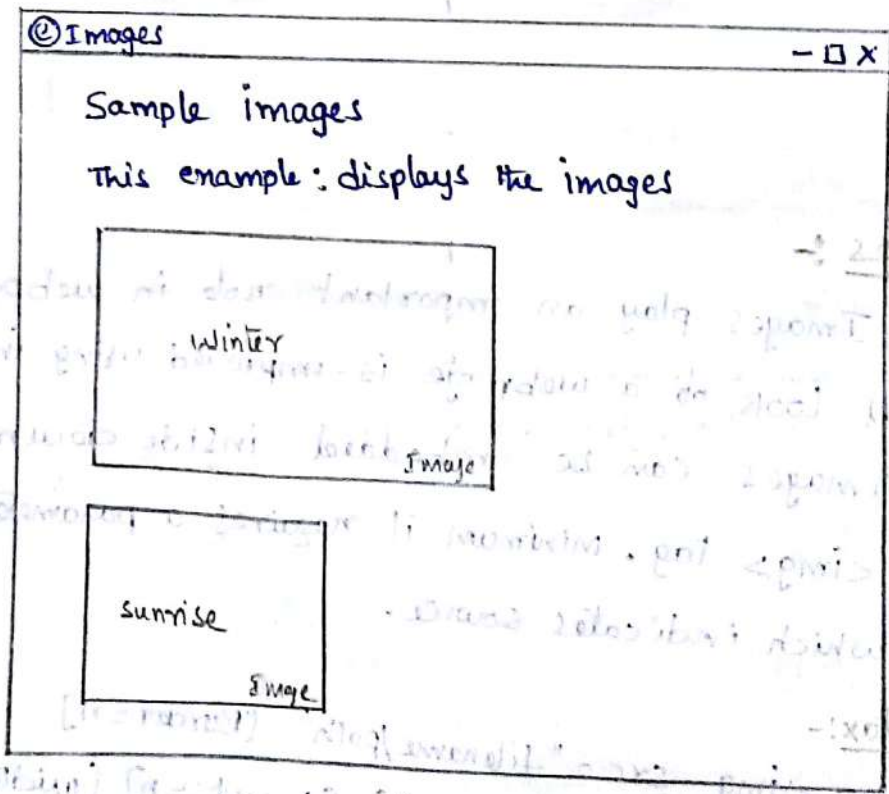 ⓔ Images - □ X
Sample images
This enample: displays the images
Winter
Image
sunrise
Image